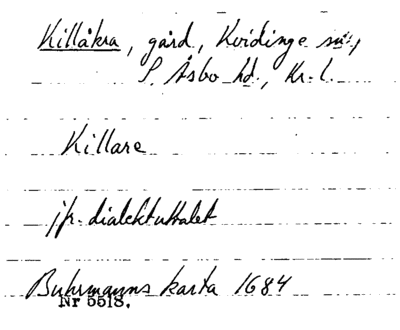 Killåkra, gård, Kvidinge sn,
S. Åsbo hd., Kr. l.
Killare
jfr dialektuttalet
Buhrmanns karta 1684
Nr 5518.